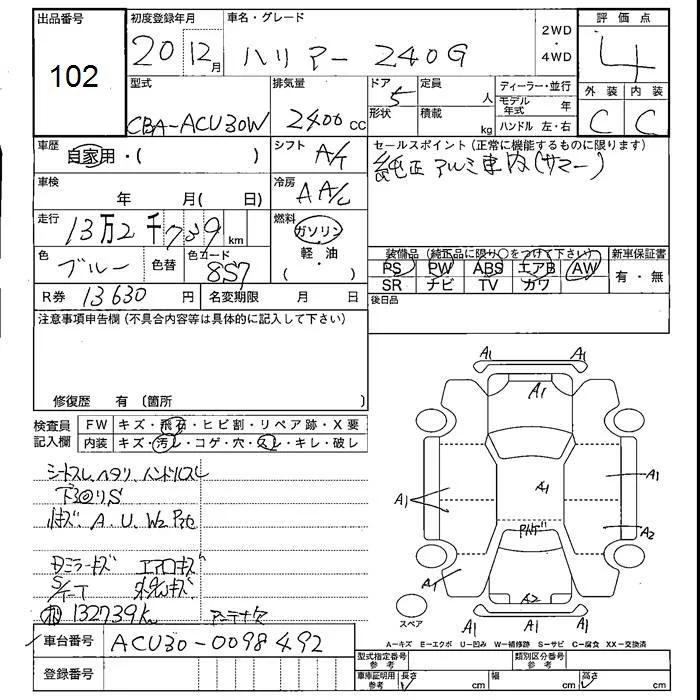 出品番号
102
初度登録年月
20 12月
車名・グレード
ハリアー 240G
2WD
・
4WD
評価点
4
型式
CBA-ACU30W
排気量
2400cc
ドア
5
形状
定員
人
積載
kg
ディーラー・並行
モデル年式 年
ハンドル 左・右
外装 内装
C C
車歴
自家用・( )
シフト
A/T
セールスポイント(正常に機能するものに限ります)
純正アルミ 車内(サマー)
車検
年 月( 日)
冷房
AA/C
走行
13万2千739km
燃料
ガソリン
軽・油
( )
色
ブルー
色替
色コード
8S7
装備品(純正品に限り○をつけて下さい)
PS PW ABS エアB AW
SR ナビ TV カワ
新車保証書
有・無
R券 13630円
名変期限 月 日
後日品
注意事項申告欄(不具合内容等は具体的に記入して下さい)
修復歴 有(箇所 )
検査員記入欄
FW キズ・飛石・ヒビ割・リペア跡・X要
内装 キズ・汚レ・コゲ・穴・スレ・キレ・破レ
シートスレ、ヘタリ、ハンドルスレ
下廻りS
A.U.W2
ミラーキズ エアロキズ
132739Km アンテナ
A1 A1
A1
A1
A1
A1
A2
A1
A2
A1 A1 A1
スペア
A-キズ E-エクボ U-凹み W-補修跡 S-サビ C-腐食 XX-交換済
車台番号 ACU30-0098492
登録番号
型式指定番号
参考
類別区分番号
参考
車庫証明用
参考
長さ cm 幅 cm 高さ cm